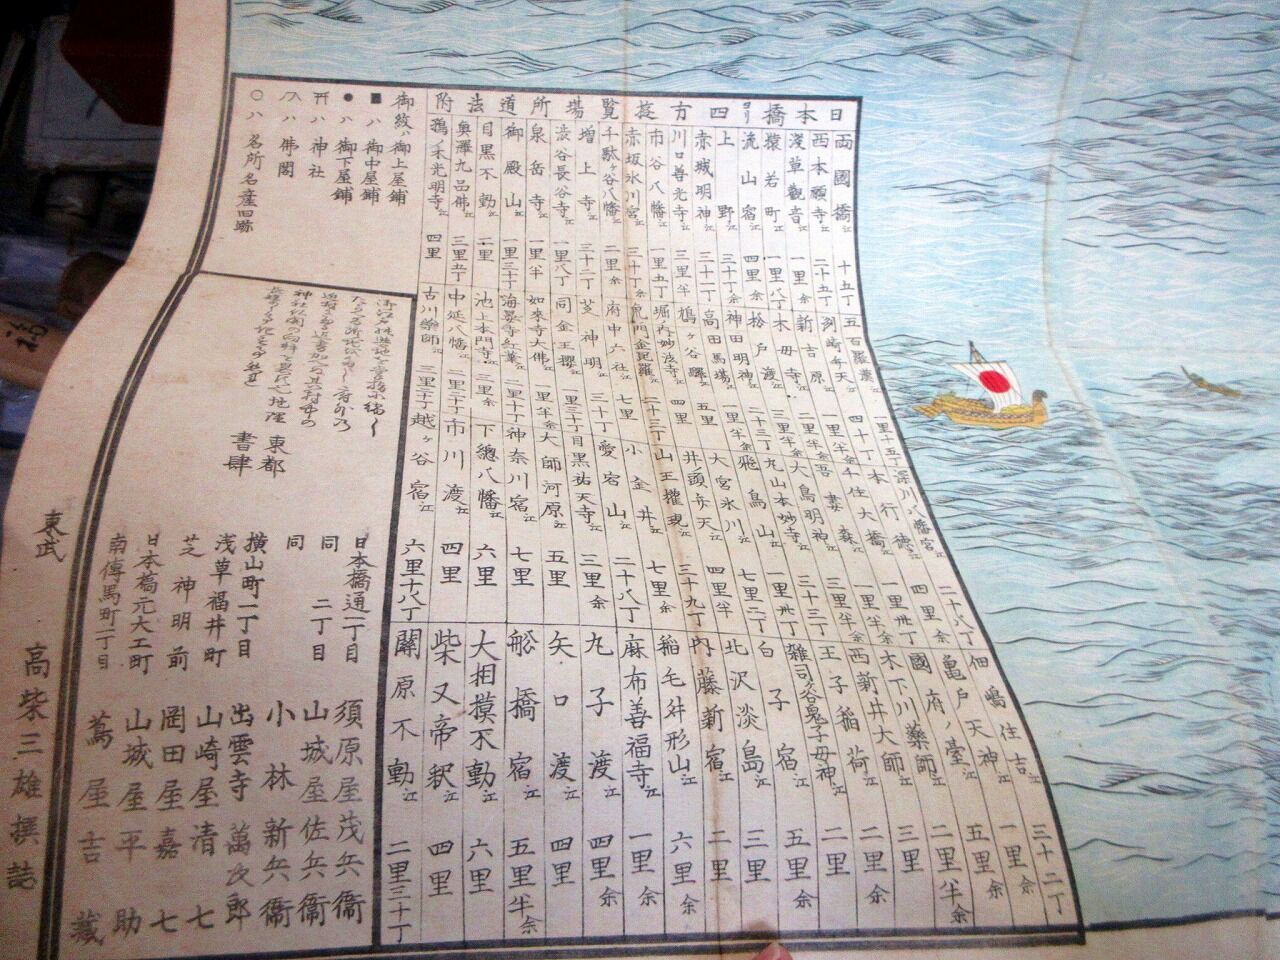 日本橋ヨリ四方遊覧場所道法附
両國橋江 十五丁
西本願寺江 二十五丁
浅草觀音江 一里余
猿若町江 一里八丁
流山宿江 四里余
上野江 三十丁余
赤城明神江 三十二丁
川口善光寺江 三里半
市谷八幡江 一里五丁
赤坂氷川宮江 三十丁余
千駄ヶ谷八幡江 二里余
増上寺江 三十二丁
渋谷長谷寺江 一里八丁
泉岳寺江 一里半
御殿山江 一里三十丁
目黒不動江 二里
奥澤九品佛江 三里五丁
鵜ノ木光明寺江 四里
五百羅漢江 一里十五丁
洲崎弁天江 四十丁
新吉原江 一里半余
木母寺江 二里半余
松戸渡江 三里半余
神田明神江 二十三丁
高田馬場江 一里半余
鳩ヶ谷驛江 五里
堀ノ内妙法寺江 四里
虎ノ門金毘羅江 二十三丁
府中六社江 七里
芝神明江 三十丁
同金王櫻江 一里三十丁
如來寺大佛江 一里半余
海晏寺紅葉江 二里十丁
池上本門寺江 三里余
中延八幡江 二里三十丁
古川藥師江 三里三十丁
深川八幡宮江 二十八丁
本行徳江 四里余
千住大橋江 一里卅丁
吾妻森江 一里半余
大鳥明神江 三里半余
丸山本妙寺江 三十三丁
飛鳥山江 一里卅丁
大宮氷川江 七里二丁
井ノ頭弁天江 四里半
山王權現江 三十九丁
小金井江 七里余
愛宕山江 二十八丁
目黒祐天寺江 三里余
大師河原江 五里
神奈川宿江 七里
下總八幡江 六里
市川渡江 四里
越ヶ谷宿江 六里十八丁
佃嶋住吉江 三十二丁
亀戸天神江 一里余
國府ノ臺江 五里余
木下川藥師江 二里半余
西新井大師江 三里
王子稲荷江 二里余
雑司ヶ谷鬼子母神江 二里
白子宿江 五里余
北沢淡島江 三里
内藤新宿江 二里
稲毛舛形山江 六里余
麻布善福寺江 一里余
九子渡江 四里余
矢口渡江 四里
舩橋宿江 五里半余
大相摸不動江 六里
柴又帝釈江 四里
關原不動江 二里三十丁
御紋ハ御上屋鋪
■ハ御中屋鋪
●ハ御下屋鋪
⛩ハ神社
ハ佛閣
○ハ名所名産旧跡
東都
書肆
日本橋通一丁目 須原屋茂兵衛
同 二丁目 山城屋佐兵衛
同 小林新兵衛
横山町一丁目 出雲寺萬次郎
浅草福井町 山崎屋清七
芝神明前 岡田屋嘉七
日本橋元大工町 山城屋平助
南傳馬町一丁目 蔦屋吉藏
東武 高柴三雄撰誌